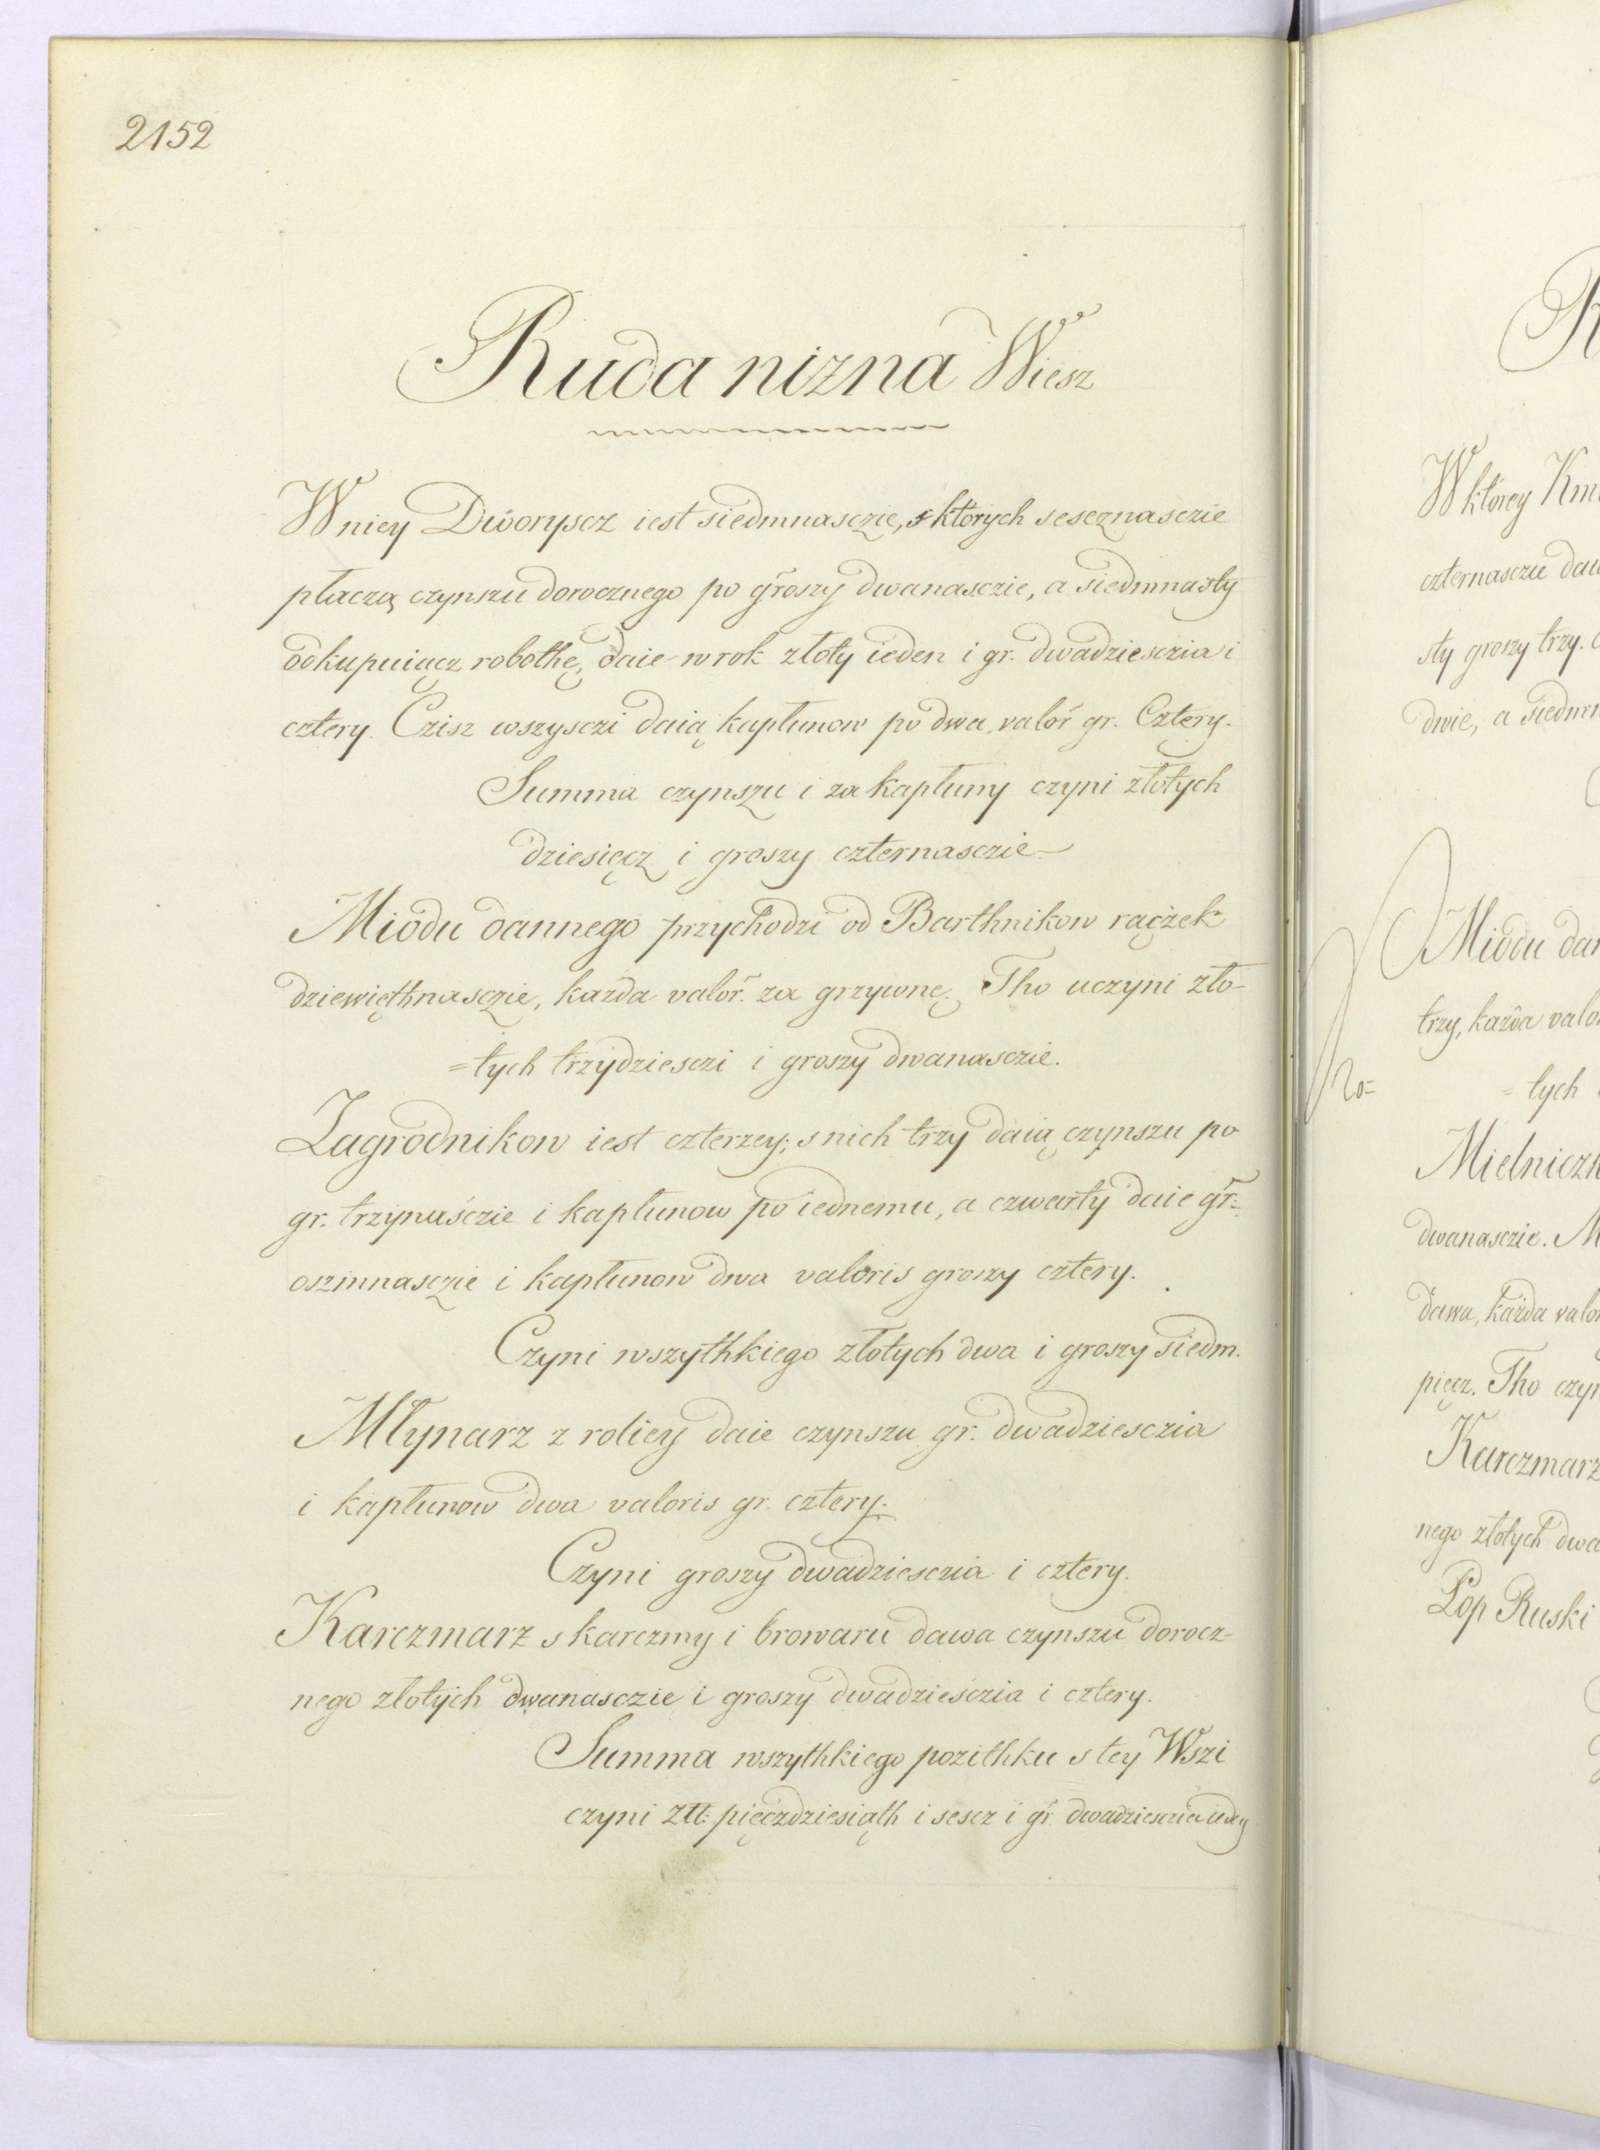 2152
Ruda nizna Wiesz
W niey Dworyscz iest siedmnasczie, s których sescznasczie
płaczą czynszu dorocznego po groszy dwanasczie, a siedmnasty
odkupuiącz robothę, daie w rok złoty ieden i gr. dwadziesczia i
cztery. Czisz wszysczi daią kapłunow po dwa, valor gr. Cztery.
Summa czynszu i za kapłuny czyni złotych
dziesięcz i groszy czternasczie.
Miodu dannego przychodzi od Barthnikow rączek
dziewięthnasczie, kazda valor. za grzywnę. Tho uczyni zło-
=tych trzydziesczi i groszy dwanasczie.
Zagrodnikow iest czterzey; s nich trzy daią czynszu po
gr. trzynasczie i kapłunow po iednemu, a czwarty daie gr.
oszmnasczie i kapłunow dwa valoris groszy cztery.
Czyni wszythkiego złotych dwa i groszy siedm.
Młynarz z roliey daie czynszu gr. dwadziesczia
i kapłunow dwa valoris gr. cztery.
Czyni groszy dwadziesczia i cztery.
Karczmarz s karczmy i browaru dawa czynszu dorocz-
nego złotych dwanasczie i groszy dwadziesczia i cztery.
Summa wszythkiego pozithku s tey Wszi
czyni złł: pięczdziesiąth i sescz i gr. dwadziesczia
W którey
czternasczie
sty groszy trzy.
dwie, a
Miodu
trzy, kazda
=tych
Mielniczk
dwanasczie. M
dawa, kazda
pięcz. Tho
Karczmarz
nego złotych dwa
Pop Ruski